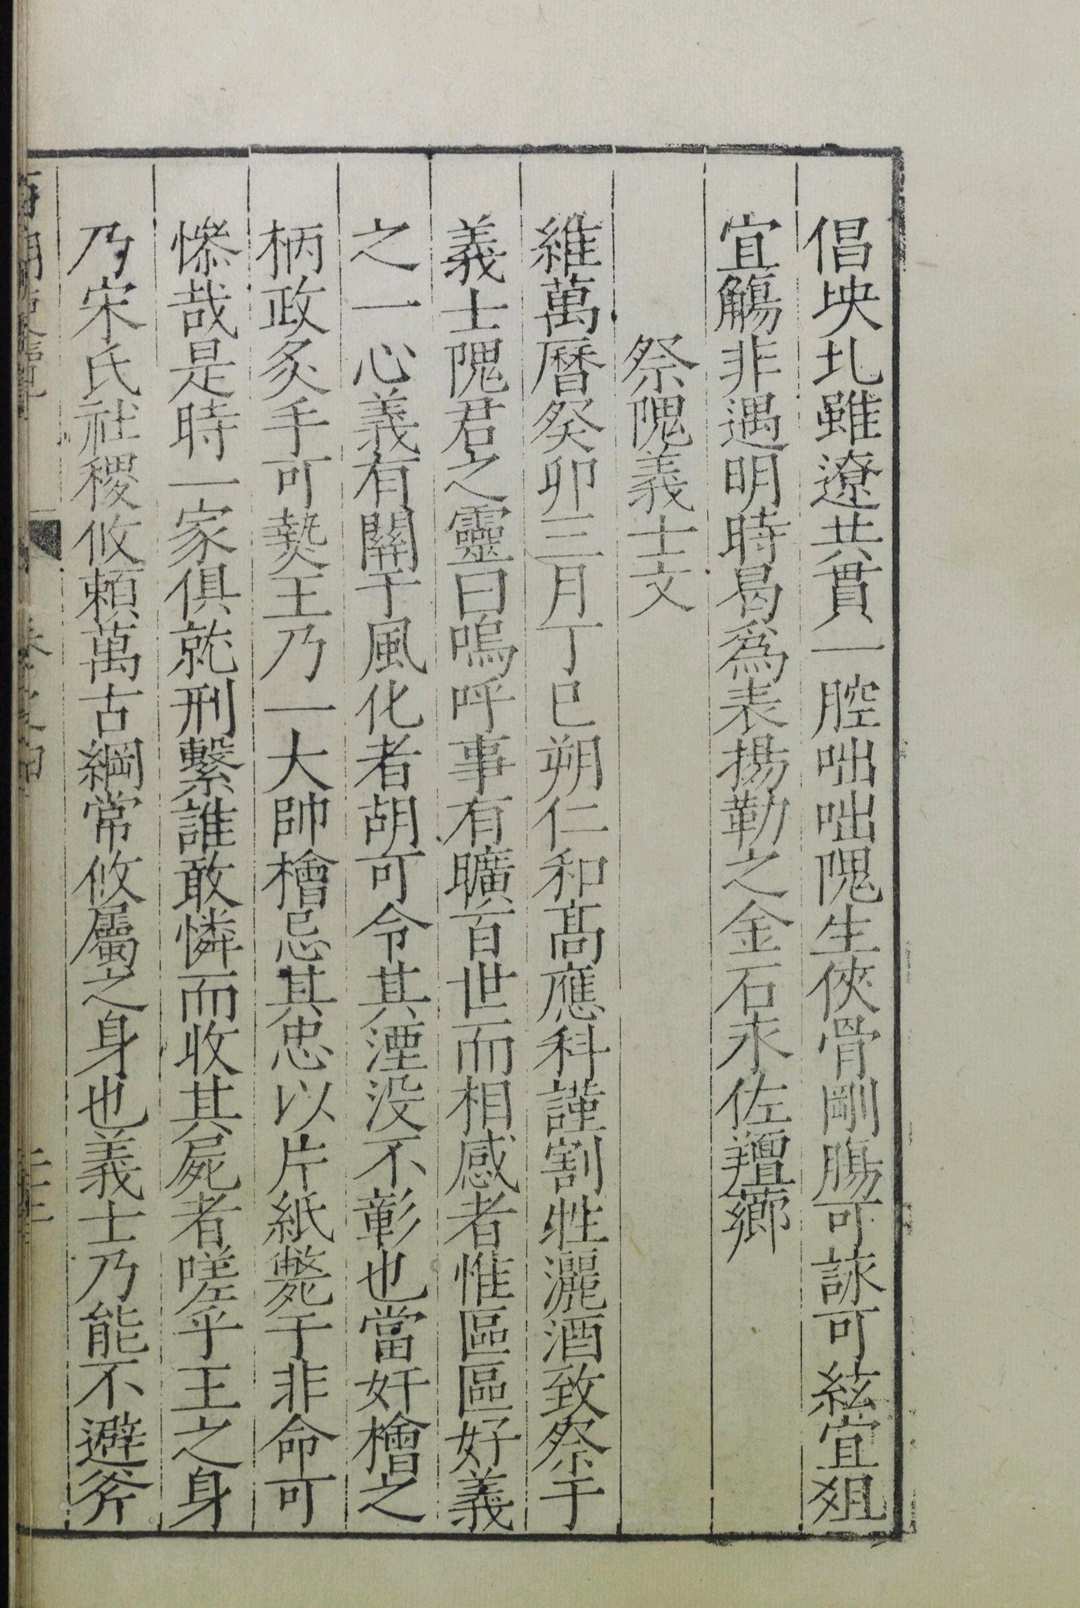 倡坱圠雖遼共貫一腔咄咄隗生俠骨剛腸可詠可絃宜俎
宜觴非遇明時曷為表揚勒之金石永佐羶薌
祭隗義士文
維萬曆癸卯三月丁巳朔仁和高應科謹割牲灑酒致祭于
義士隗君之靈曰嗚呼事有曠百世而相感者惟區區好義
之一心義有關于風化者胡可令其湮没不彰也當奸檜之
柄政炙手可𤍠王乃一大帥檜忌其忠以片紙斃于非命可
慘哉是時一家俱就刑繫誰敢憐而收其屍者嗟乎王之身
乃宋氏社稷攸頼萬古綱常攸屬之身也義士乃能不避斧